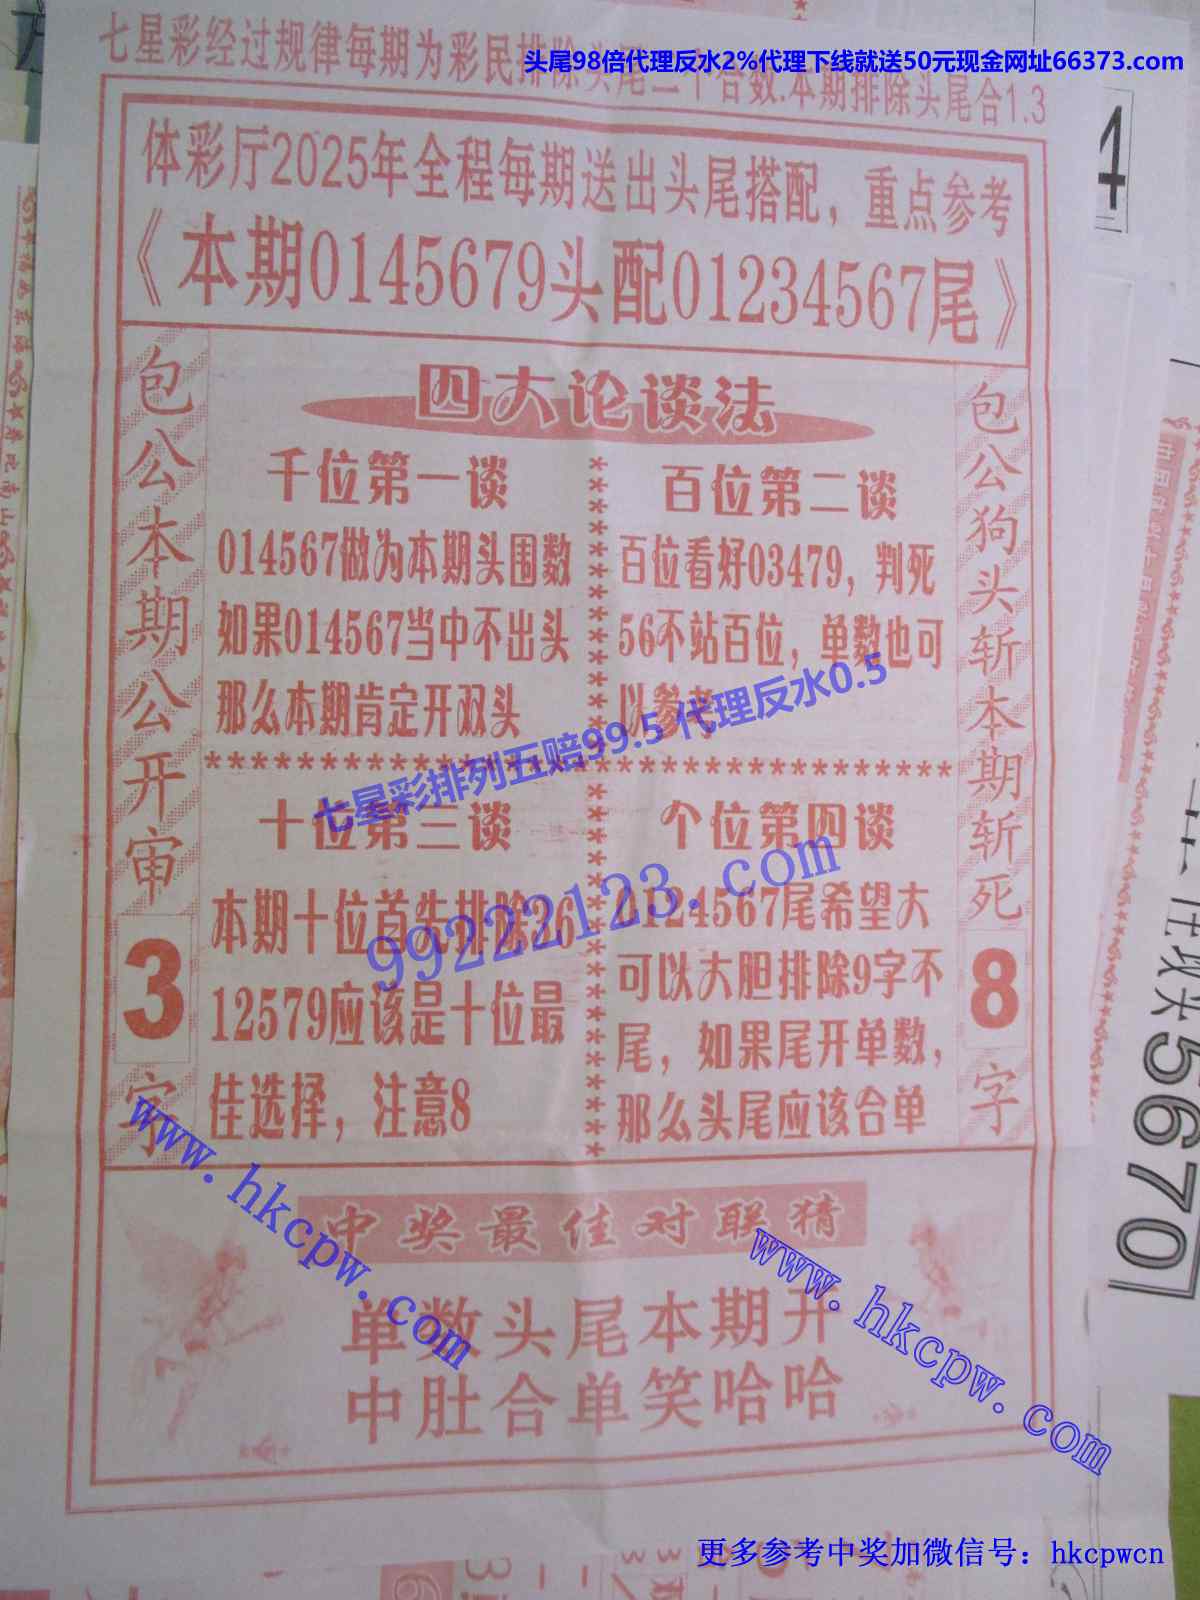 头尾98倍代理反水2%代理下线就送50元现金网址66373.com
七星彩经过规律每期为彩民排除头尾二个合数.本期排除头尾合1.3
体彩厅2025年全程每期送出头尾搭配，重点参考
《本期0145679头配01234567尾》
包公本期公开审
3
字
四大论谈法
千位第一谈
014567做为本期头围数
如果014567当中不出头
那么本期肯定开双头
百位第二谈
百位看好03479，判死
56不站百位，单数也可
以参考
七星彩排列五赔99.5 代理反水0.5
十位第三谈
本期十位首先排除36
12579应该是十位最
佳选择，注意8
99222123.com
个位第四谈
0124567尾希望大
可以大胆排除9字不
尾，如果尾开单数，
那么头尾应该合单
包公狗头斩本期斩死
8
字
www.hkcpw.com
www.hkcpw.com
中奖最佳对联猜
单数头尾本期开
中肚合单笑哈哈
4
5670
更多参考中奖加微信号：hkcpwcn